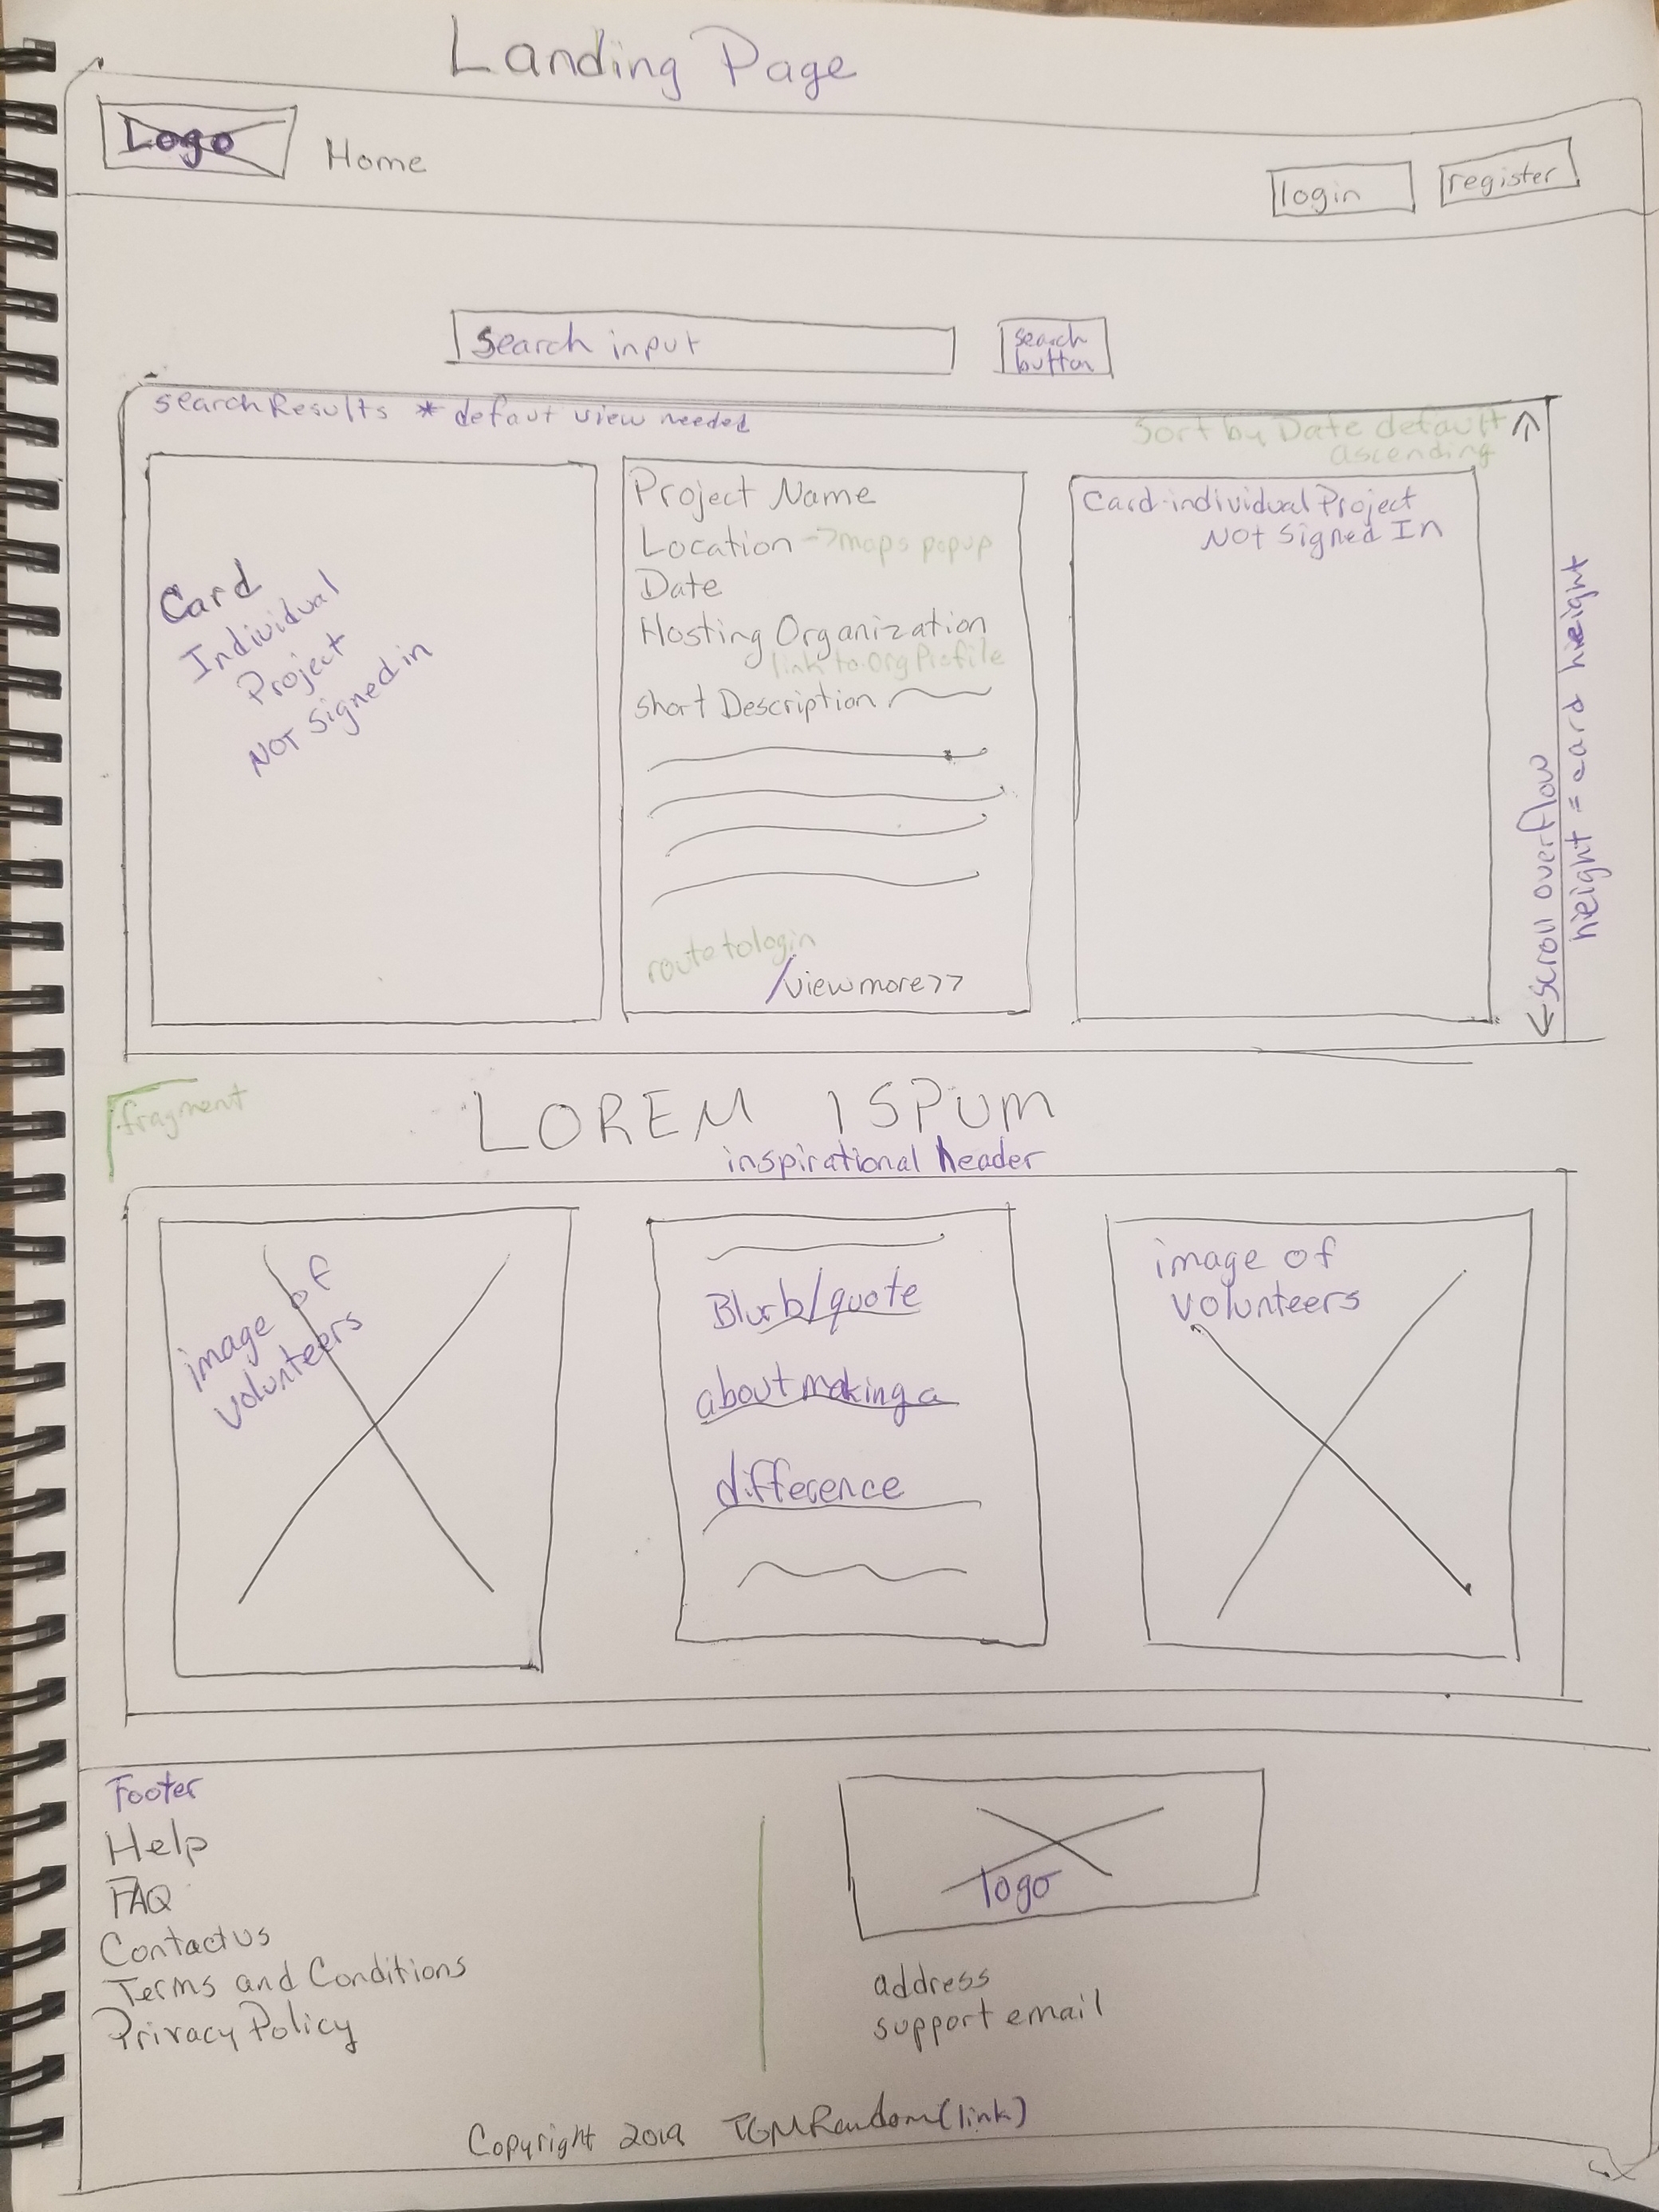 Landing Page
Logo
Home
login
register
Search input
search
button
searchResults * defaut view needed
Sort by Date default
ascending
Card
Individual
Project
NOT Signed in
Project Name
Location ->maps popup
Date
Hosting Organization
link to Org Profile
Short Description
route to login
/view more >>
Card-individual Project
NOT Signed In
<-scroll overflow ->
height = card hieght
fragment
LOREM ISPUM
inspirational header
image of
volunteers
Blurb/quote
about making a
difference
image of
volunteers
Footer
Help
FAQ
Contact us
Terms and Conditions
Privacy Policy
logo
address
support email
Copyright 2019 TGMRandom(link)